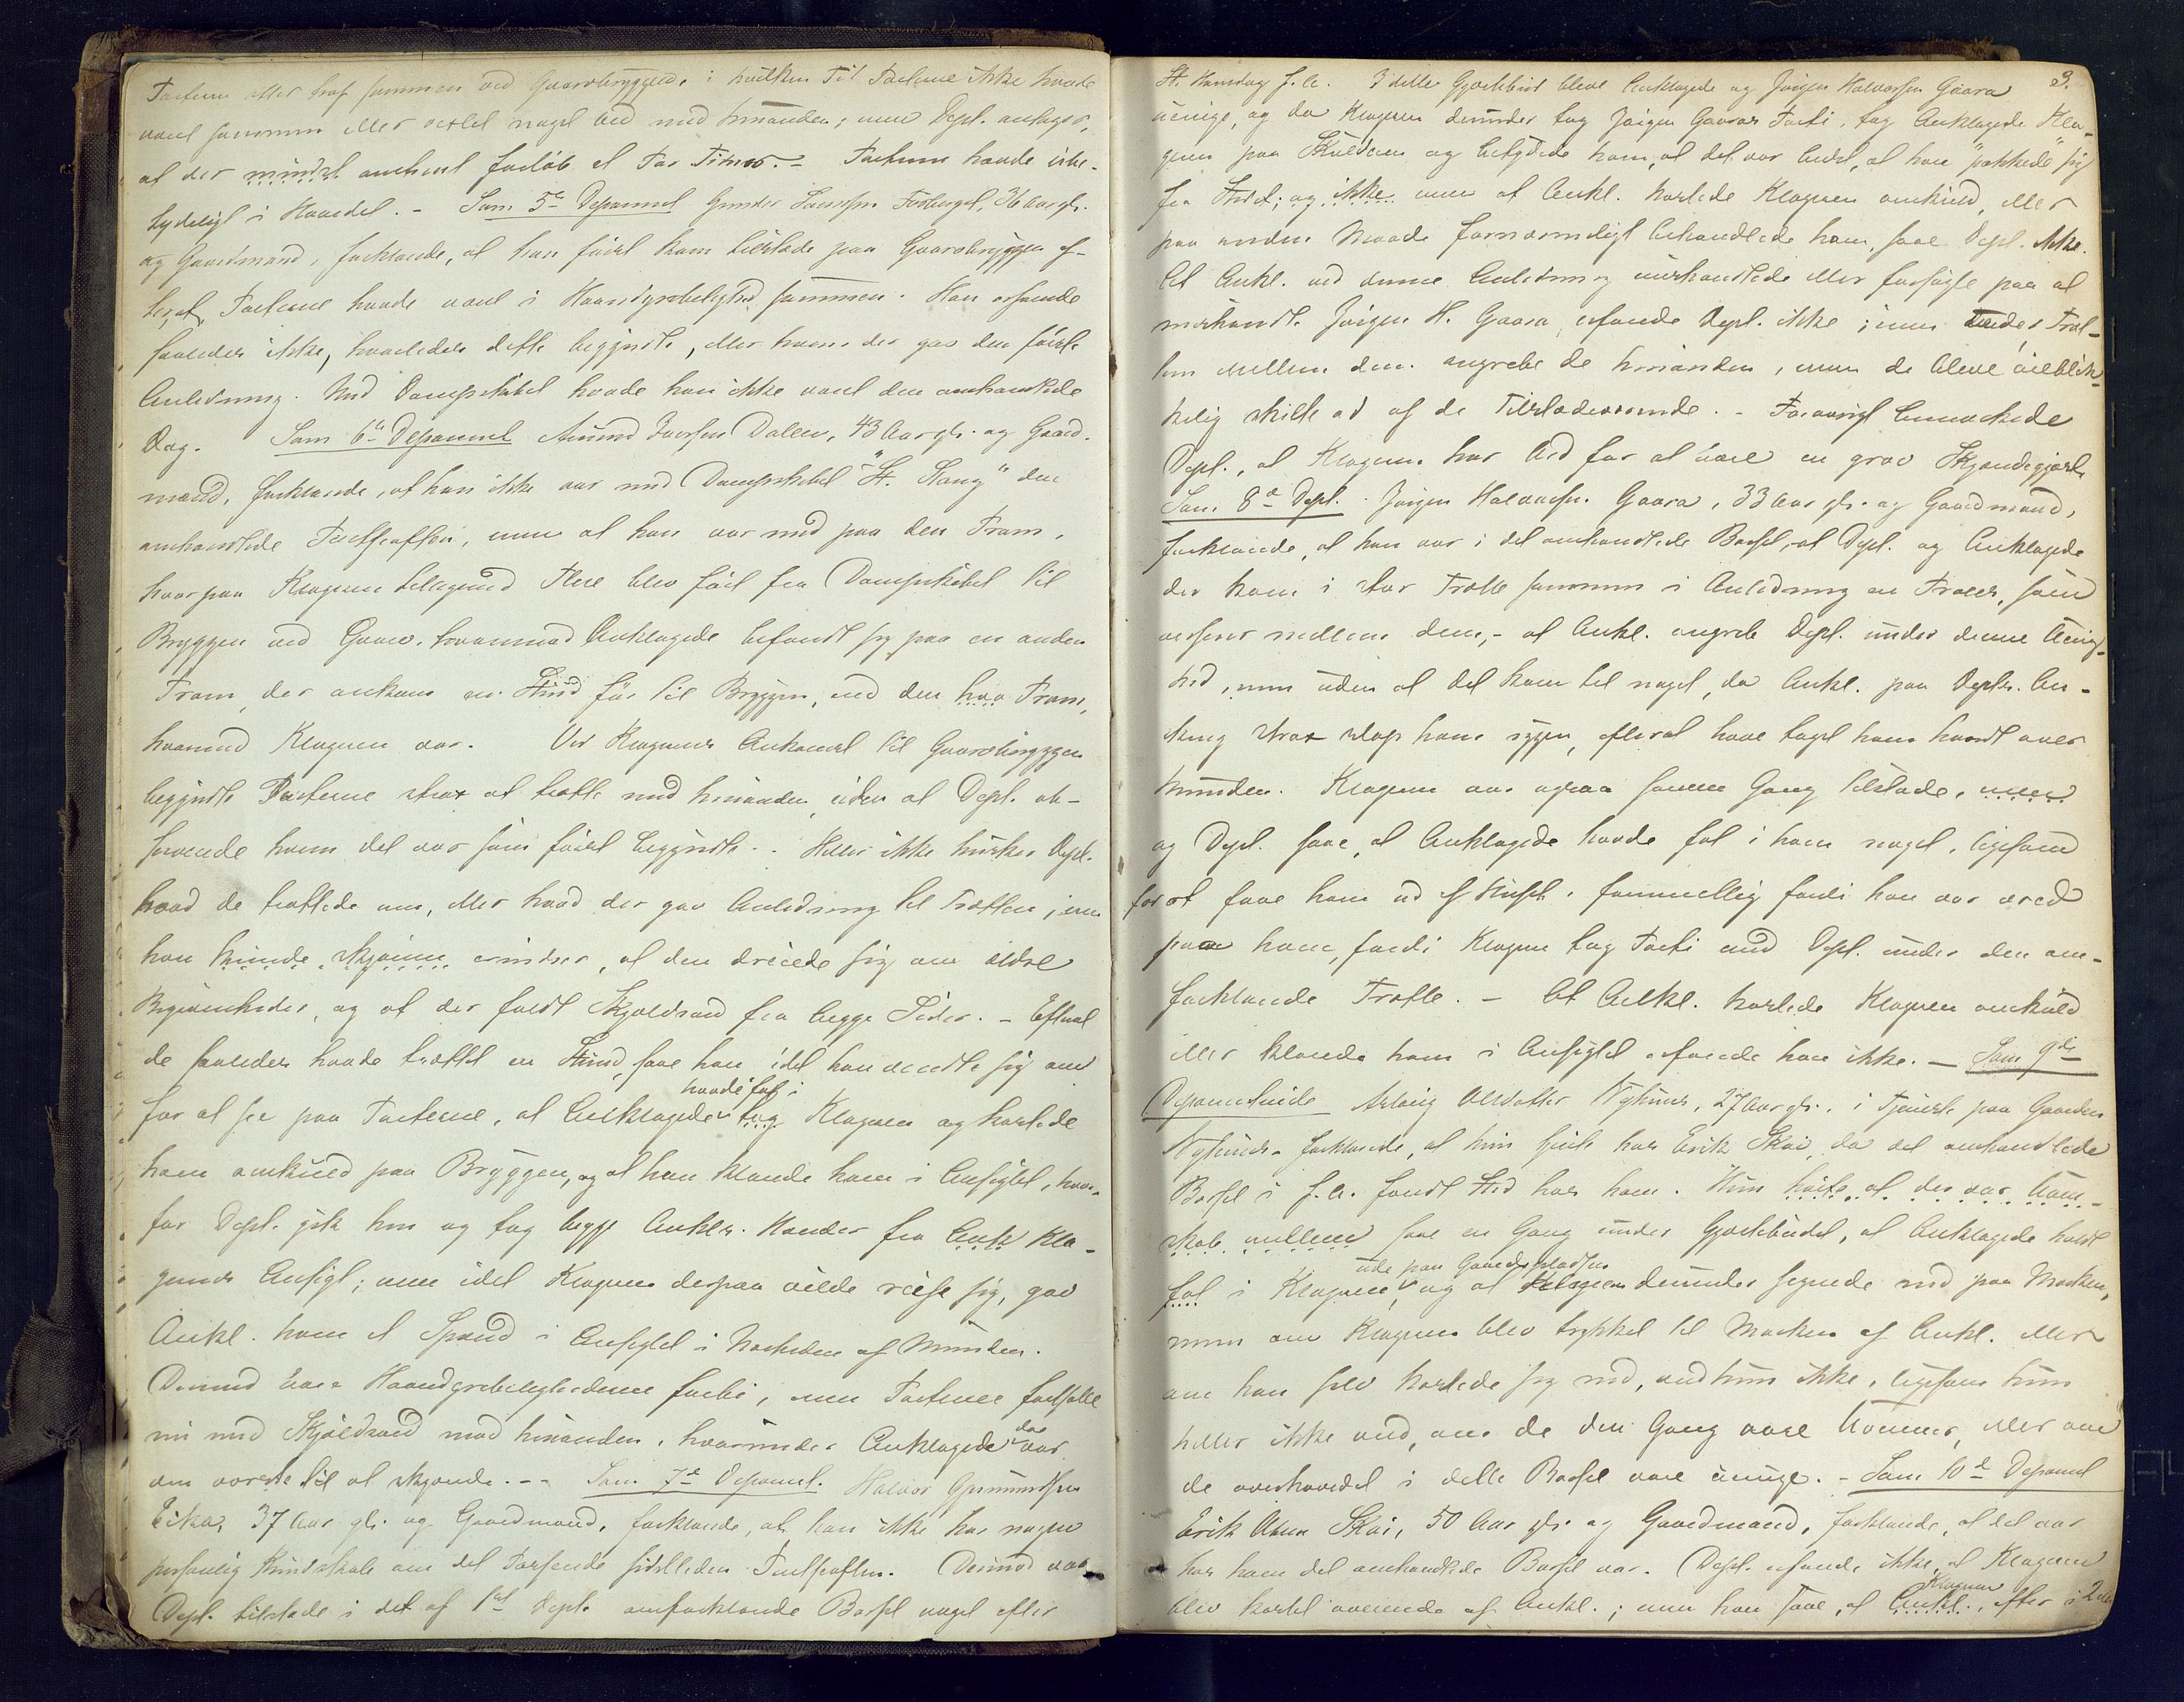 Parterne atter traf sammen ved Gaarebryggen, i hvilken Tid Parterne ikke havde
været sammen eller vexlet noget Ord med hinanden; men Dept. antager,
at der mindst omtrent forløb et Par Timer. - Parterne havde ube-
tydeligt i Hovedet. - Som 5te Deponent Gunder Larssen 36 Aar gl.
og Gaardmand, forklarede, at han først kom tilstede paa Gaarebryggen ef-
terat Parterne havde været i Haandgribelighed sammen. Han erfarede
saaledes ikke, hvorledes dette begyndte, eller hvem der gav den første
Anledning. Med Dampskibet havde han ikke været den omhandlede
Dag. Som 6te Deponent Amund Iversen Dalen, 43 Aar gl. og Gaard-
mand, forklarede, at han ikke var med Dampskibet "St. Stang" den
omhandlede Juleaften, men at han var med paa den Pram,
hvorpaa Klageren tilligemed Flere blev ført fra Dampskibet til
Bryggen ved Gaare, hvorimod Anklagede befandt sig paa en anden
Pram, der ankom en Stund før til Bryggen, end den hvor Pram,
hvormed Klageren var. Ved Klagerens Ankomst til Gaarebryggen
begyndte Parterne strax at trætte med hinanden, uden at Dept. ob-
serverede hvem det var som først begyndte. Heller ikke husker Dept.
hvad de trættede om, eller hvad der gav Anledning til Trætten; men
han kunde skjønne erindrer, at den dreiede sig om ældre
Begivenheder, og at der faldt Skjældsord fra begge Sider. - Efterat
de saaledes havde trættet en Stund, saae han idet han vendte sig om
havde fat i
for at see paa Parterne, at Anklagede tog Klageren og kastede
ham omkuld paa Bryggen, og at han klorede ham i Ansigtet, hvor-
for Dept. gik hen og tog begge Ankls. Hænder fra Ankl. Kla-
gerens Ansigt; men idet Klageren derpaa vilde reise sig, gav
Ankl. ham et Spænd i Ansigtet i Nærheden af Munden.
Dermed vare Haandgribelighederne forbi, men Parterne fortsatte
nu med Skjældsord mod hinanden, hvorunder Anklagede var
den
om værste til at skjænde. - Som 7de Deponent. Halvor Gjermundsen
Eika, 37 Aar gl. og Gaardmand, forklarede, at han ikke har nogen
personlig Kundskab om det Passerede sidstleden Juleaften. Derimod var
Dept. tilstede i det af 1ste Dept. omforklarede Barsel noget efter
3.
St. Hansdag f. A. I dette Gjæstebud bleve Anklagede og Jørgen Halvorsen Gaara
uenige, og da Klageren derunder tog Jørgen Gaaras Parti, tog Anklagede Kla-
geren paa Skuldren og betydede ham, at det var bedst, at han "pakkede" sig
fra Stedet; og ikke men at Ankl. kastede Klageren omkuld, eller
paa anden Maade fornærmeligt behandlede ham, saae Dept. ikke.
At Ankl. ved denne Anledning mishandlede eller forsøgte paa at
mishandle Jørgen H. Gaara, erfarede Dept. ikke; men under Træt-
ten mellem dem angrebe de hinanden, men de bleve øieblik-
kelig skilte ad af de Tilstedeværende. - Forøvrigt bemærkede
Dept., at Klageren har Ord for at være en grov Skjændegjæst.
Som 8de Dept. Jørgen Halvorsen Gaara, 33 Aar gl. og Gaardmand,
forklarede, at han var i det omhandlede Barsel, at Dept. og Anklagede
der kom i stor Trætte sammen i Anledning en Proces, som
verserer mellem dem, - at Ankl. angreb Dept. under denne Uenig-
hed, men uden at det kom til noget, da Ankl. paa Depts. An-
strax slap ham igjen, efterat have taget ham haardt over
Munden. Klageren var ogsaa samme Gang tilstede, men
og Dept. saae, at Anklagede havde fat i ham noget, ligesom
for at faae ham ud af Huset, formentlig fordi han var vred
paa ham, fordi Klageren tog Parti med Dept. under den om-
forklarede Trætte. - At Ankl. kastede Klageren omkuld
eller klorede ham i Ansigtet erfarede han ikke. - Som 9de
Deponentinde Aslaug Olsdatter Nyhuus, 27 Aar gl., i Tjeneste paa Gaarden
Nyhuus, forklarede, at hun tjente hos Erik Skoe, da det omhandlede
Barsel i f. A. fandt Sted hos ham. Hun hørte at der var Uven-
skab mellem saae en Gang under Gjæstebudet, at Anklagede holdt
ude paa Gaardspladsen
fat i Klageren, og at Klageren derunder segnede ned paa Marken,
men om Klageren blev trykket til Marken af Ankl. eller
om han selv kastede sig ned, ved hun ikke, ligesom hun
heller ikke ved, om de den Gang vare Uvenner, eller om
de overhovedet i dette Barsel vare uenige. - Som 10de Deponent
Erik Skoe, 50 Aar gl. og Gaardmand, forklarede, at det var
hos ham det omhandlede Barsel var. Dept. erfarede ikke, at Klageren
Klageren
blev kastet overende af Ankl.; men han saae, at Ankl., efter i 2den